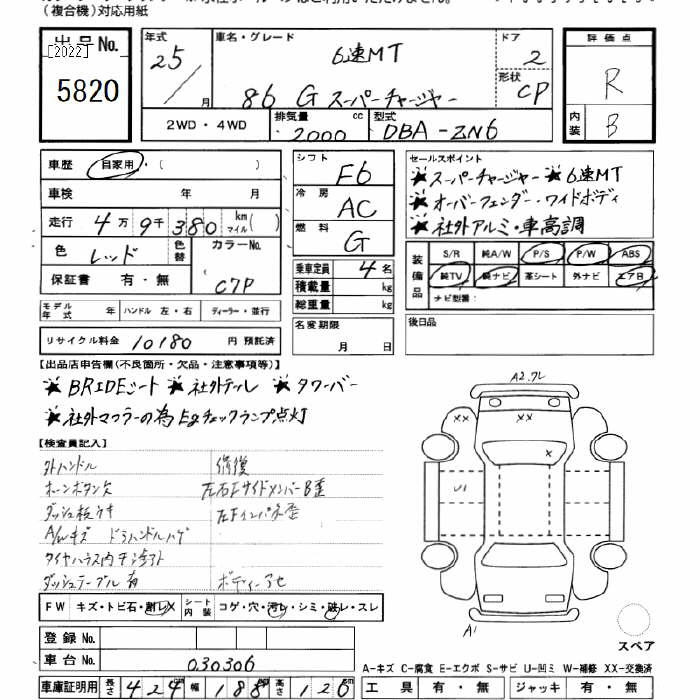 （複合機）対応用紙
出品No.
[2022]
5820
年式 25 / 月
車名・グレード 6速MT
86 G スーパーチャージャー
ドア 2
形状 CP
評価点
R
内装 B
2WD・4WD
排気量 2000 cc
型式 DBA-ZN6
車歴 自家用・( )
車検 年 月
走行 4万9千380 km マイル( )
色 レッド 色替
カラーNo. C7P
保証書 有・無
モデル年式 年
ハンドル 左・右
ディーラー・並行
リサイクル料金 10180 円 預託済
シフト F6
冷房 AC
燃料 G
乗車定員 4名
積載量 kg
総重量 kg
名変期限
月 日
セールスポイント
★スーパーチャージャー ★6速MT
★オーバーフェンダー・ワイドボディ
★社外アルミ・車高調
装備品
S/R 純A/W P/S P/W ABS
純TV 純ナビ 革シート 外ナビ エアB
ナビ型番：
後日品
【出品店申告欄(不良箇所・欠品・注意事項等)】
★BRIDEシート ★社外テール ★タワーバー
★社外マフラーの為Egチェックランプ点灯
【検査員記入】
外ハンドル
ホーンボタン欠
ダッシュ板キキ
A/Wキズ ドラハンドルハゲ
タイヤハウス内チッピング
ダッシュテープル有
修復
左右Fサイドメンバー歪
左Fインパネ歪
ボディーアセ
FW キズ・トビ石・割レX
シート内装 コゲ・穴・汚レ・シミ・破レ・スレ
登録No.
車台No. 030306
車庫証明用 長さ 424cm 幅 188cm 高さ 126cm
A2.フレ
XX
X
U1
A1
スペア
A-キズ C-腐食 E-エクボ S-サビ U-凹ミ W-補修 XX-交換済
工具 有・無 ジャッキ 有・無